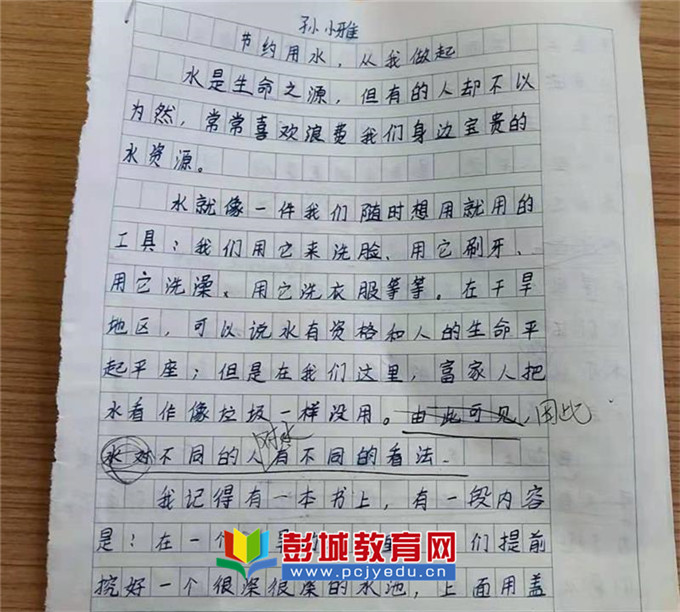 孙小雅
节约用水，从我做起
水是生命之源，但有的人却不以
为然，常常喜欢浪费我们身边宝贵的
水资源。
水就像一件我们随时想用就用的
工具；我们用它来洗脸、用它刷牙、
用它洗澡、用它洗衣服等等。在干旱
地区，可以说水有资格和人的生命平
起平座；但是在我们这里，富家人把
水看作像垃圾一样没用。由此可见，因此
水对不同的人对水有不同的看法.
我记得有一本书上，有一段内容
是：在一个 们提前
挖好一个很深很深的水池，上面用盖
彭城教育网
www.pcjyedu.cn